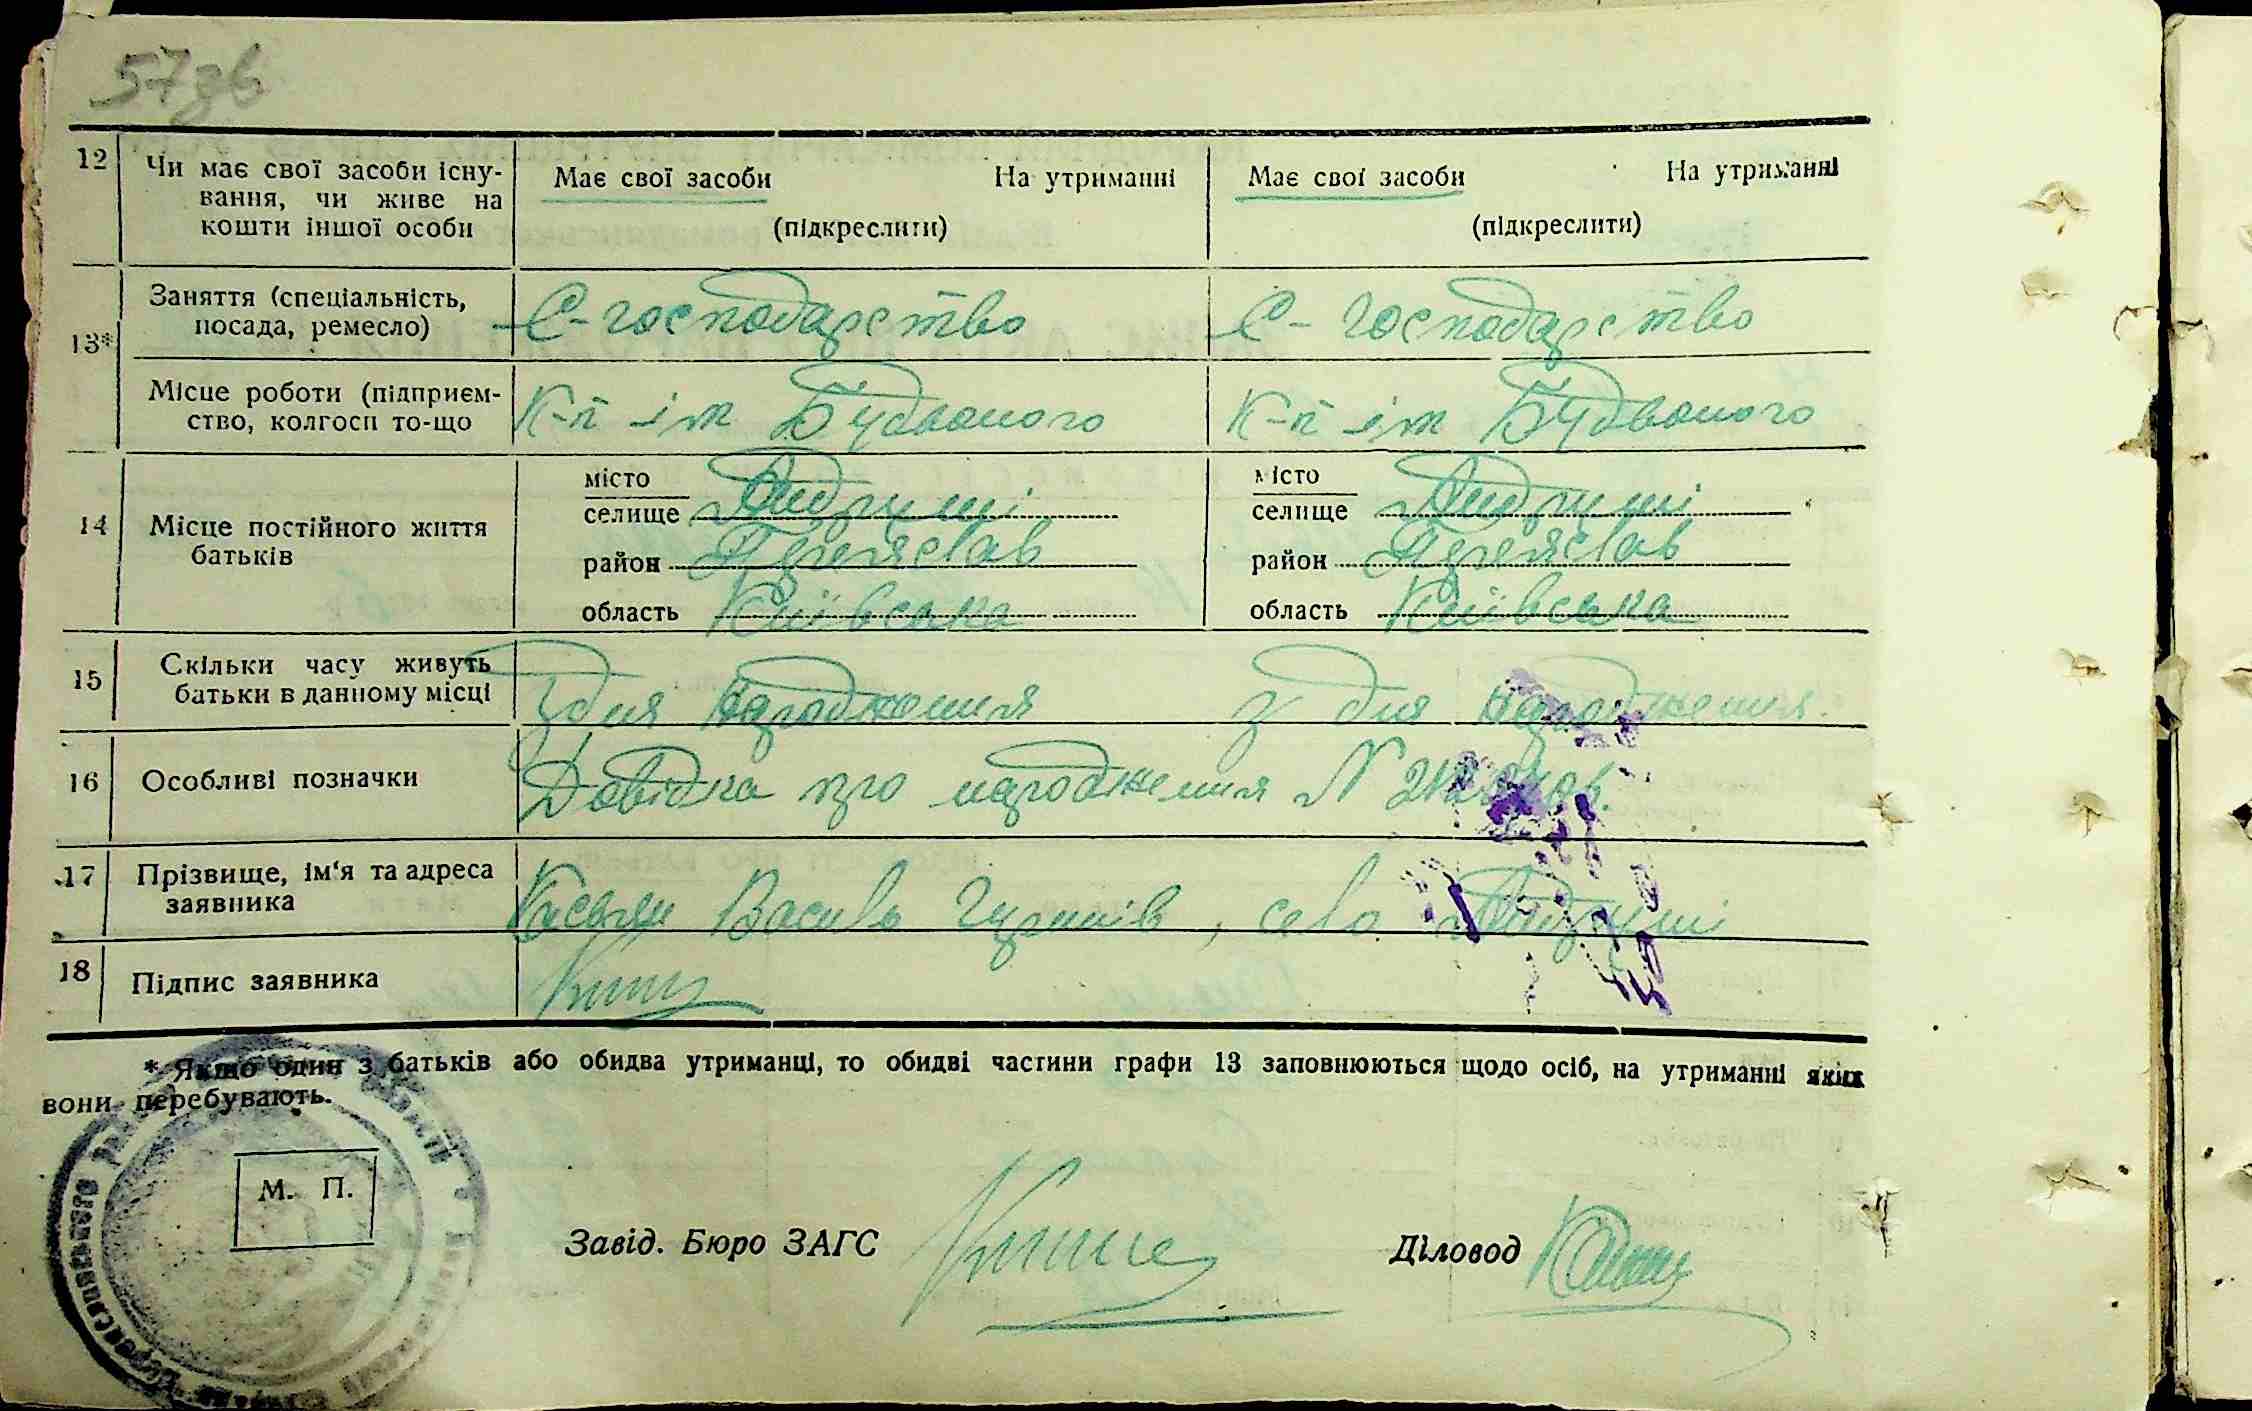 57зв
12 Чи має свої засоби існу-
вання, чи живе на
кошти іншої особи
Має свої засоби На утриманні
(підкреслити)
Має свої засоби На утриманні
(підкреслити)
13*
Заняття (спеціальність,
посада, ремесло)
С-господарство С-господарство
Місце роботи (підприєм-
ство, колгосп то-що
К-п ім Будьоного К-п ім Будьоного
14 Місце постійного життя
батьків
місто
селище Андруші
район Переяслав
область Київська
місто
селище Андруші
район Переяслав
область Київська
15 Скільки часу живуть
батьки в данному місці
З дня народження з дня народження.
16 Особливі позначки
Довідка про народження N
17 Прізвище, ім‘я та адреса
заявника
Василь , село Андруші
18 Підпис заявника
* Якщо один з батьків або обидва утриманці, то обидві частини графи 13 заповнюються щодо осіб, на утриманні яких
вони перебувають.
М. П.
Завід. Бюро ЗАГС
Діловод